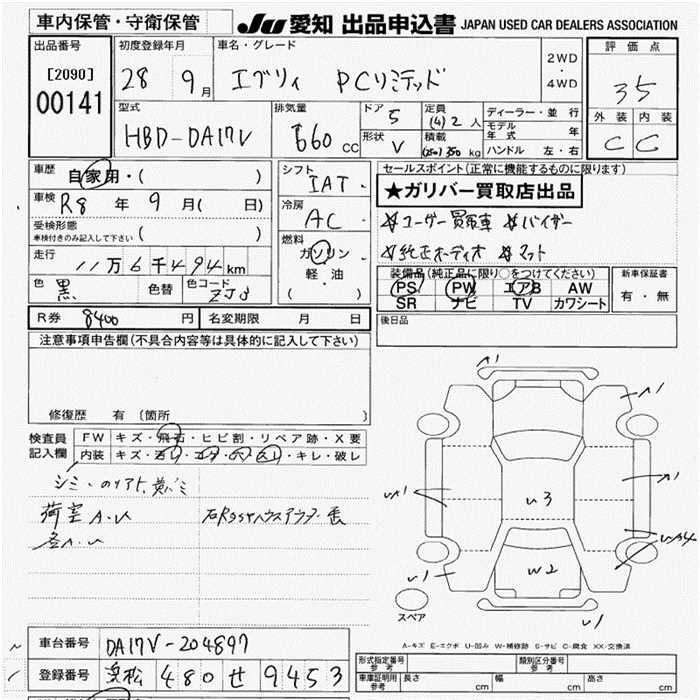 車内保管・守衛保管 JU 愛知 出品申込書 JAPAN USED CAR DEALERS ASSOCIATION
出品番号 初度登録年月 車名・グレード 2WD・4WD 評価点
[2090] 28 9月 エブリィ PCリミテッド 35
00141
型式 排気量 ドア 5 定員 (4) 2 人 ディーラー・並行 外装 内装
HBD-DA17V 660 cc 形状 V 積載 (250) 350 kg モデル年式 年 C C
ハンドル 左・右
車歴 自家用・( ) シフト IAT セールスポイント(正常に機能するものに限ります)
★ガリバー買取店出品
車検 R8 年 9 月( 日) 冷房 AC
ユーザー買取車 バイザー
受検形態 車検付きのみ記入して下さい ( ) 燃料 ガソリン・軽油 ( )
純正オーディオ マット
走行 11万6千494km
装備品(純正品に限り○をつけてください) 新車保証書
色 黒 色替 色コード ZJ3 PS PW エアB AW 有・無
SR ナビ TV カワシート
R券 8400 円 名変期限 月 日 後日品
注意事項申告欄(不具合内容等は具体的に記入して下さい)
修復歴 有(箇所 )
検査員記入欄 FW キズ・飛石・ヒビ割・リペア跡・X要
内装 キズ・キレ・破レ
シミ
荷室 A.U
A1
A1
A1
A1
U3
W2
U1
U1
スペア
A-キズ E-エクボ U-凹み W-補修跡 S-サビ C-腐食 XX-交換済
車台番号 DA17V-204897
登録番号 浜松 480 せ 9453
形式指定番号 参考 類別区分番号 参考
車庫証明用 参考 長さ cm 幅 cm 高さ cm